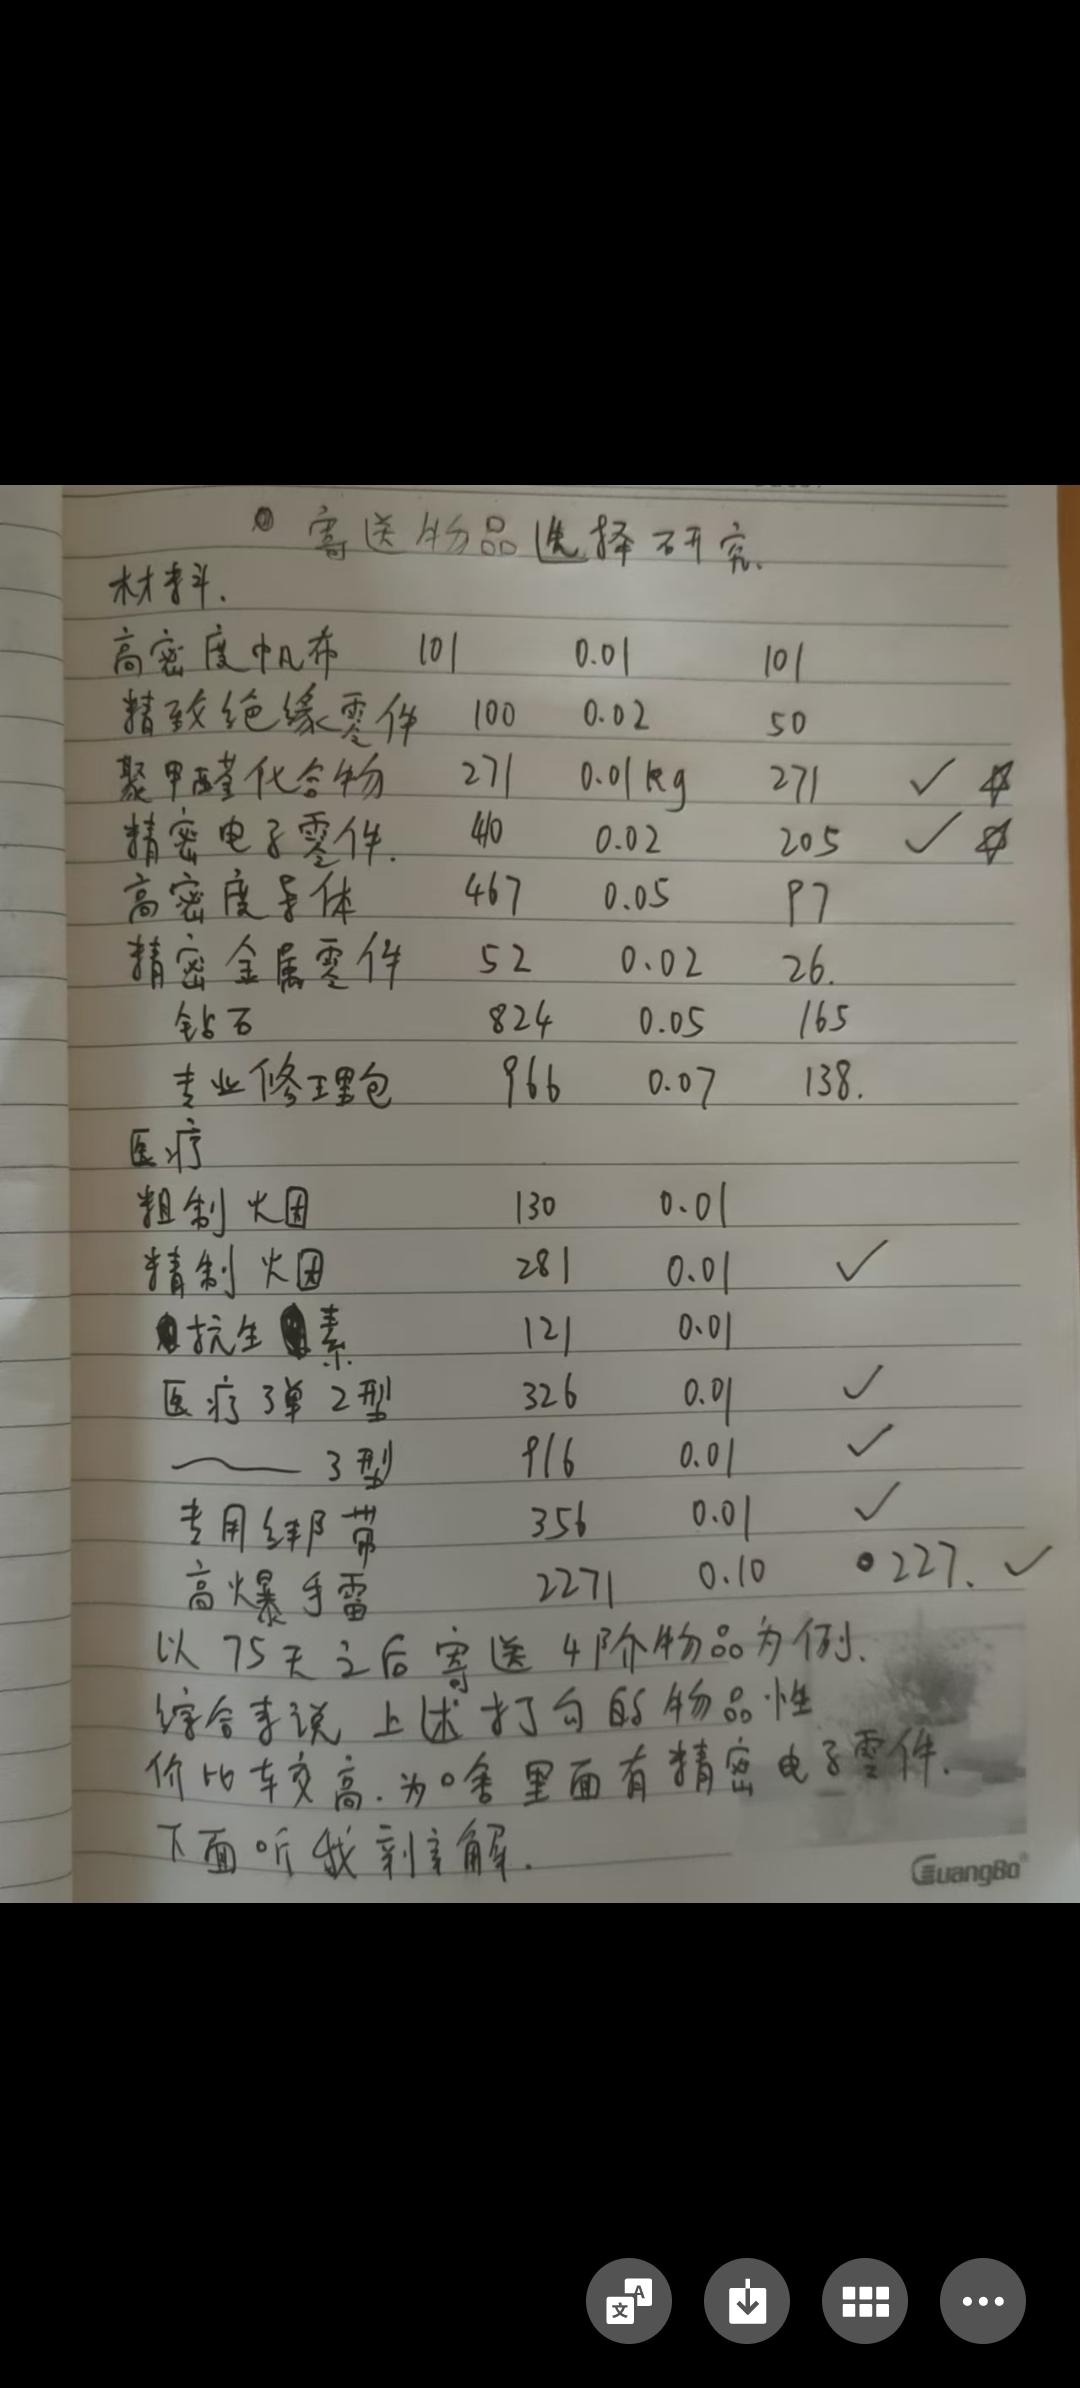 寄送物品选择研究.
材料.
高密度帆布 101 0.01 101
精致绝缘零件 100 0.02 50
聚甲醛化合物 271 0.01kg 271 ✓ ☆
精密电子零件. 410 0.02 205 ✓ ☆
高密度导体 467 0.05 97
精密金属零件 52 0.02 26.
钻石 824 0.05 165
专业修理包 966 0.07 138.
医疗
粗制火因 130 0.01
精制火因 281 0.01 ✓
抗生素 121 0.01
医疗弹2型 326 0.01 ✓
—— 3型 916 0.01 ✓
专用绑带 356 0.01 ✓
高爆手雷 2271 0.10 227. ✓
以75天之后寄送4阶物品为例.
综合来说 上述打勾的物品性
价比较高.为啥里面有精密电子零件.
下面听我讲解.
GuangBo®